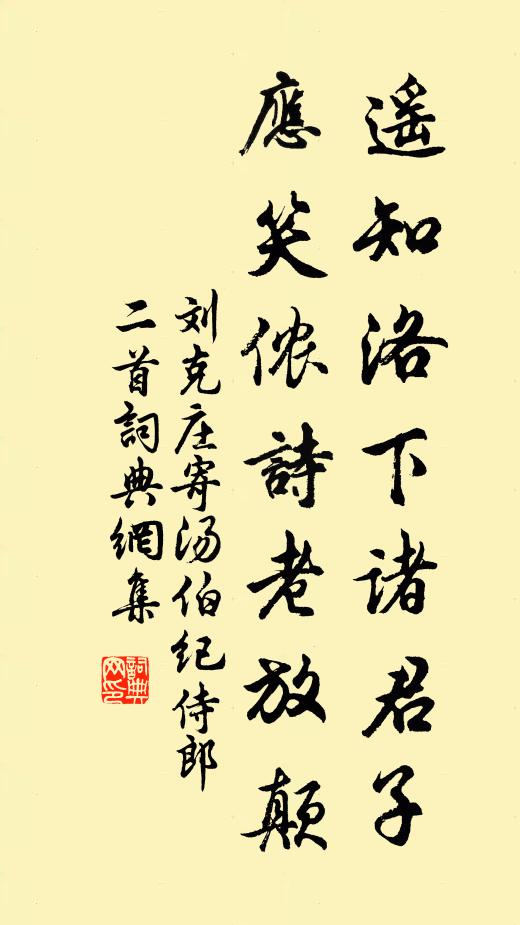 遥知洛下诸君子
應笑侬詩老放颠
刘克庄寄汤伯纪侍郎
二首詞典網集
詞典网印